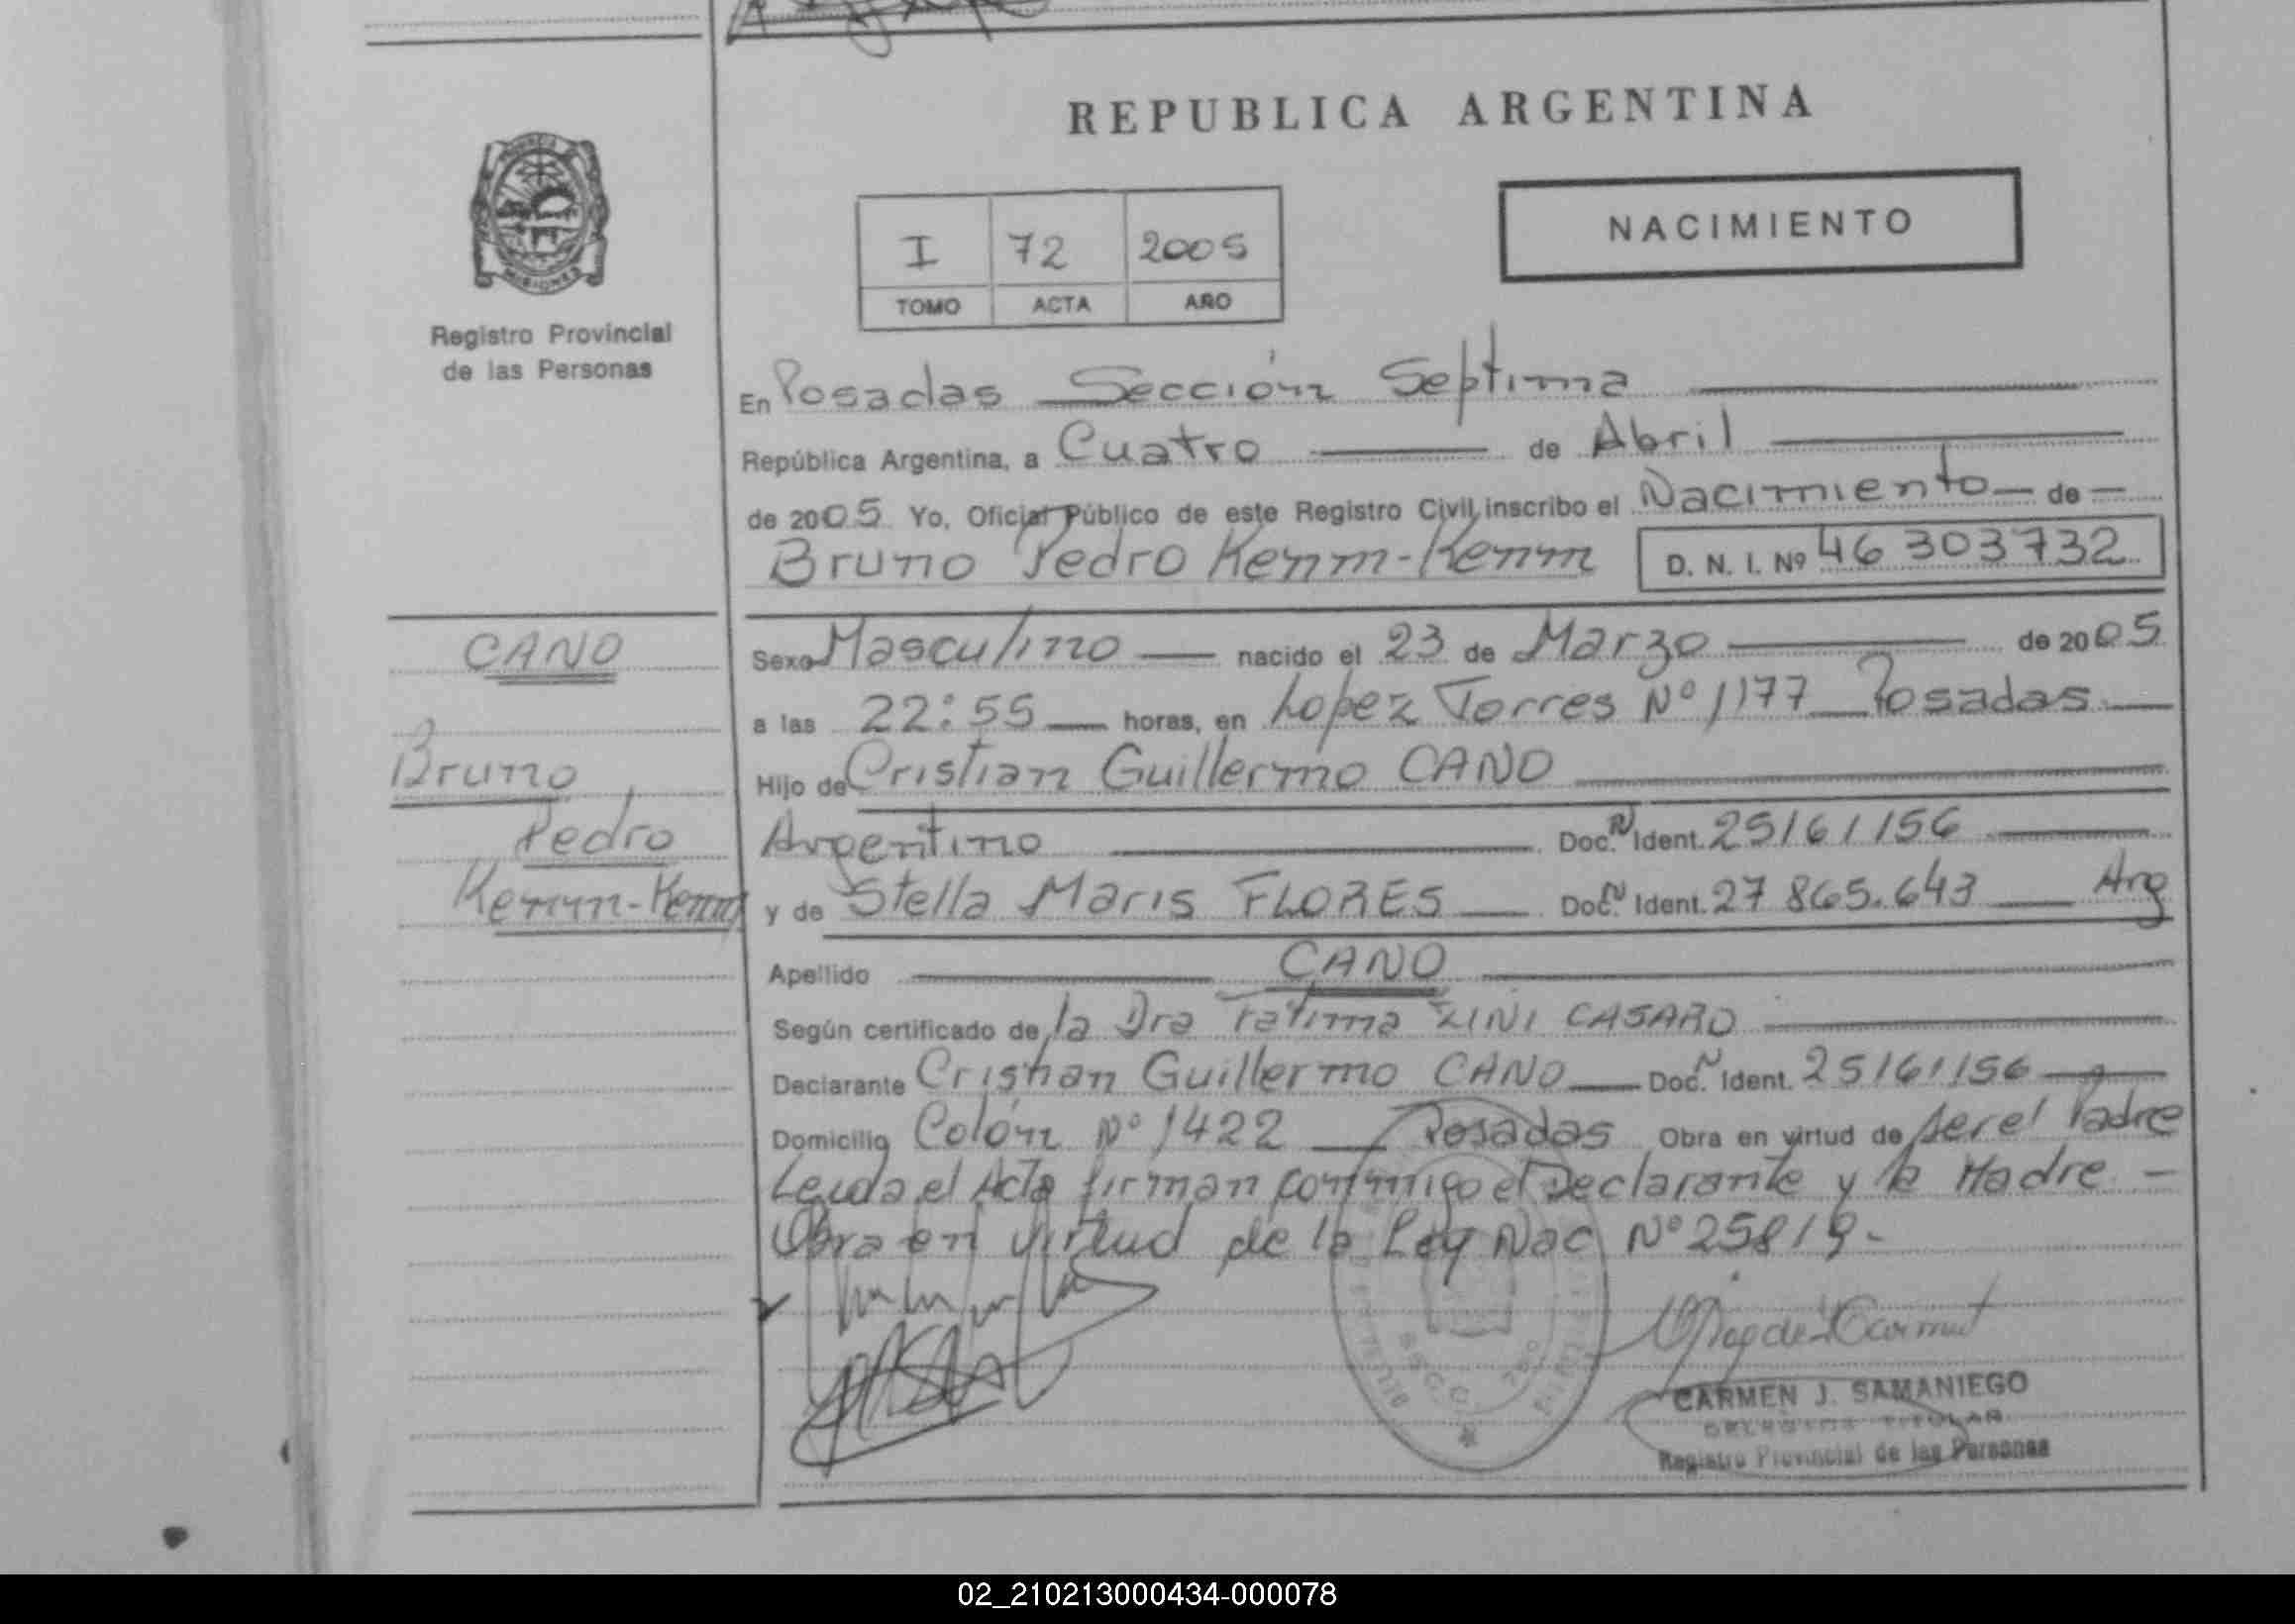 REPUBLICA ARGENTINA
NACIMIENTO
I 72 2005
TOMO ACTA AÑO
PROVINCIA
MISIONES
Registro Provincial
de las Personas
En Posadas Sección Septima
República Argentina, a Cuatro de Abril
de 2005 Yo, Oficial Público de este Registro Civil inscribo el Nacimiento de
Bruno Pedro Kenm-Kenm D. N. I. Nº 46 303732
CANO
Bruno
Pedro
Kenm-Kenm
Sexo Masculino nacido el 23 de Marzo de 2005
a las 22:55 horas, en Lopez Torres Nº 1177 Posadas
Hijo de Cristian Guillermo CANO
Argentino Doc. N Ident. 25161156
y de Stella Maris FLORES Doc. N Ident. 27 865.643 Arg
Apellido CANO
Según certificado de la Dra Fatima ZINI CASARO
Declarante Cristian Guillermo CANO Doc. N Ident. 25161156
Domicilio Colón Nº 1422 Posadas Obra en virtud de ser el Padre
Leida el Acta firman conmigo el Declarante y la Madre. -
Obra en virtud de la Ley Nac Nº 25819-
CARMEN J. SAMANIEGO
DELEGADA TITULAR
Registro Provincial de las Personas
02_210213000434-000078